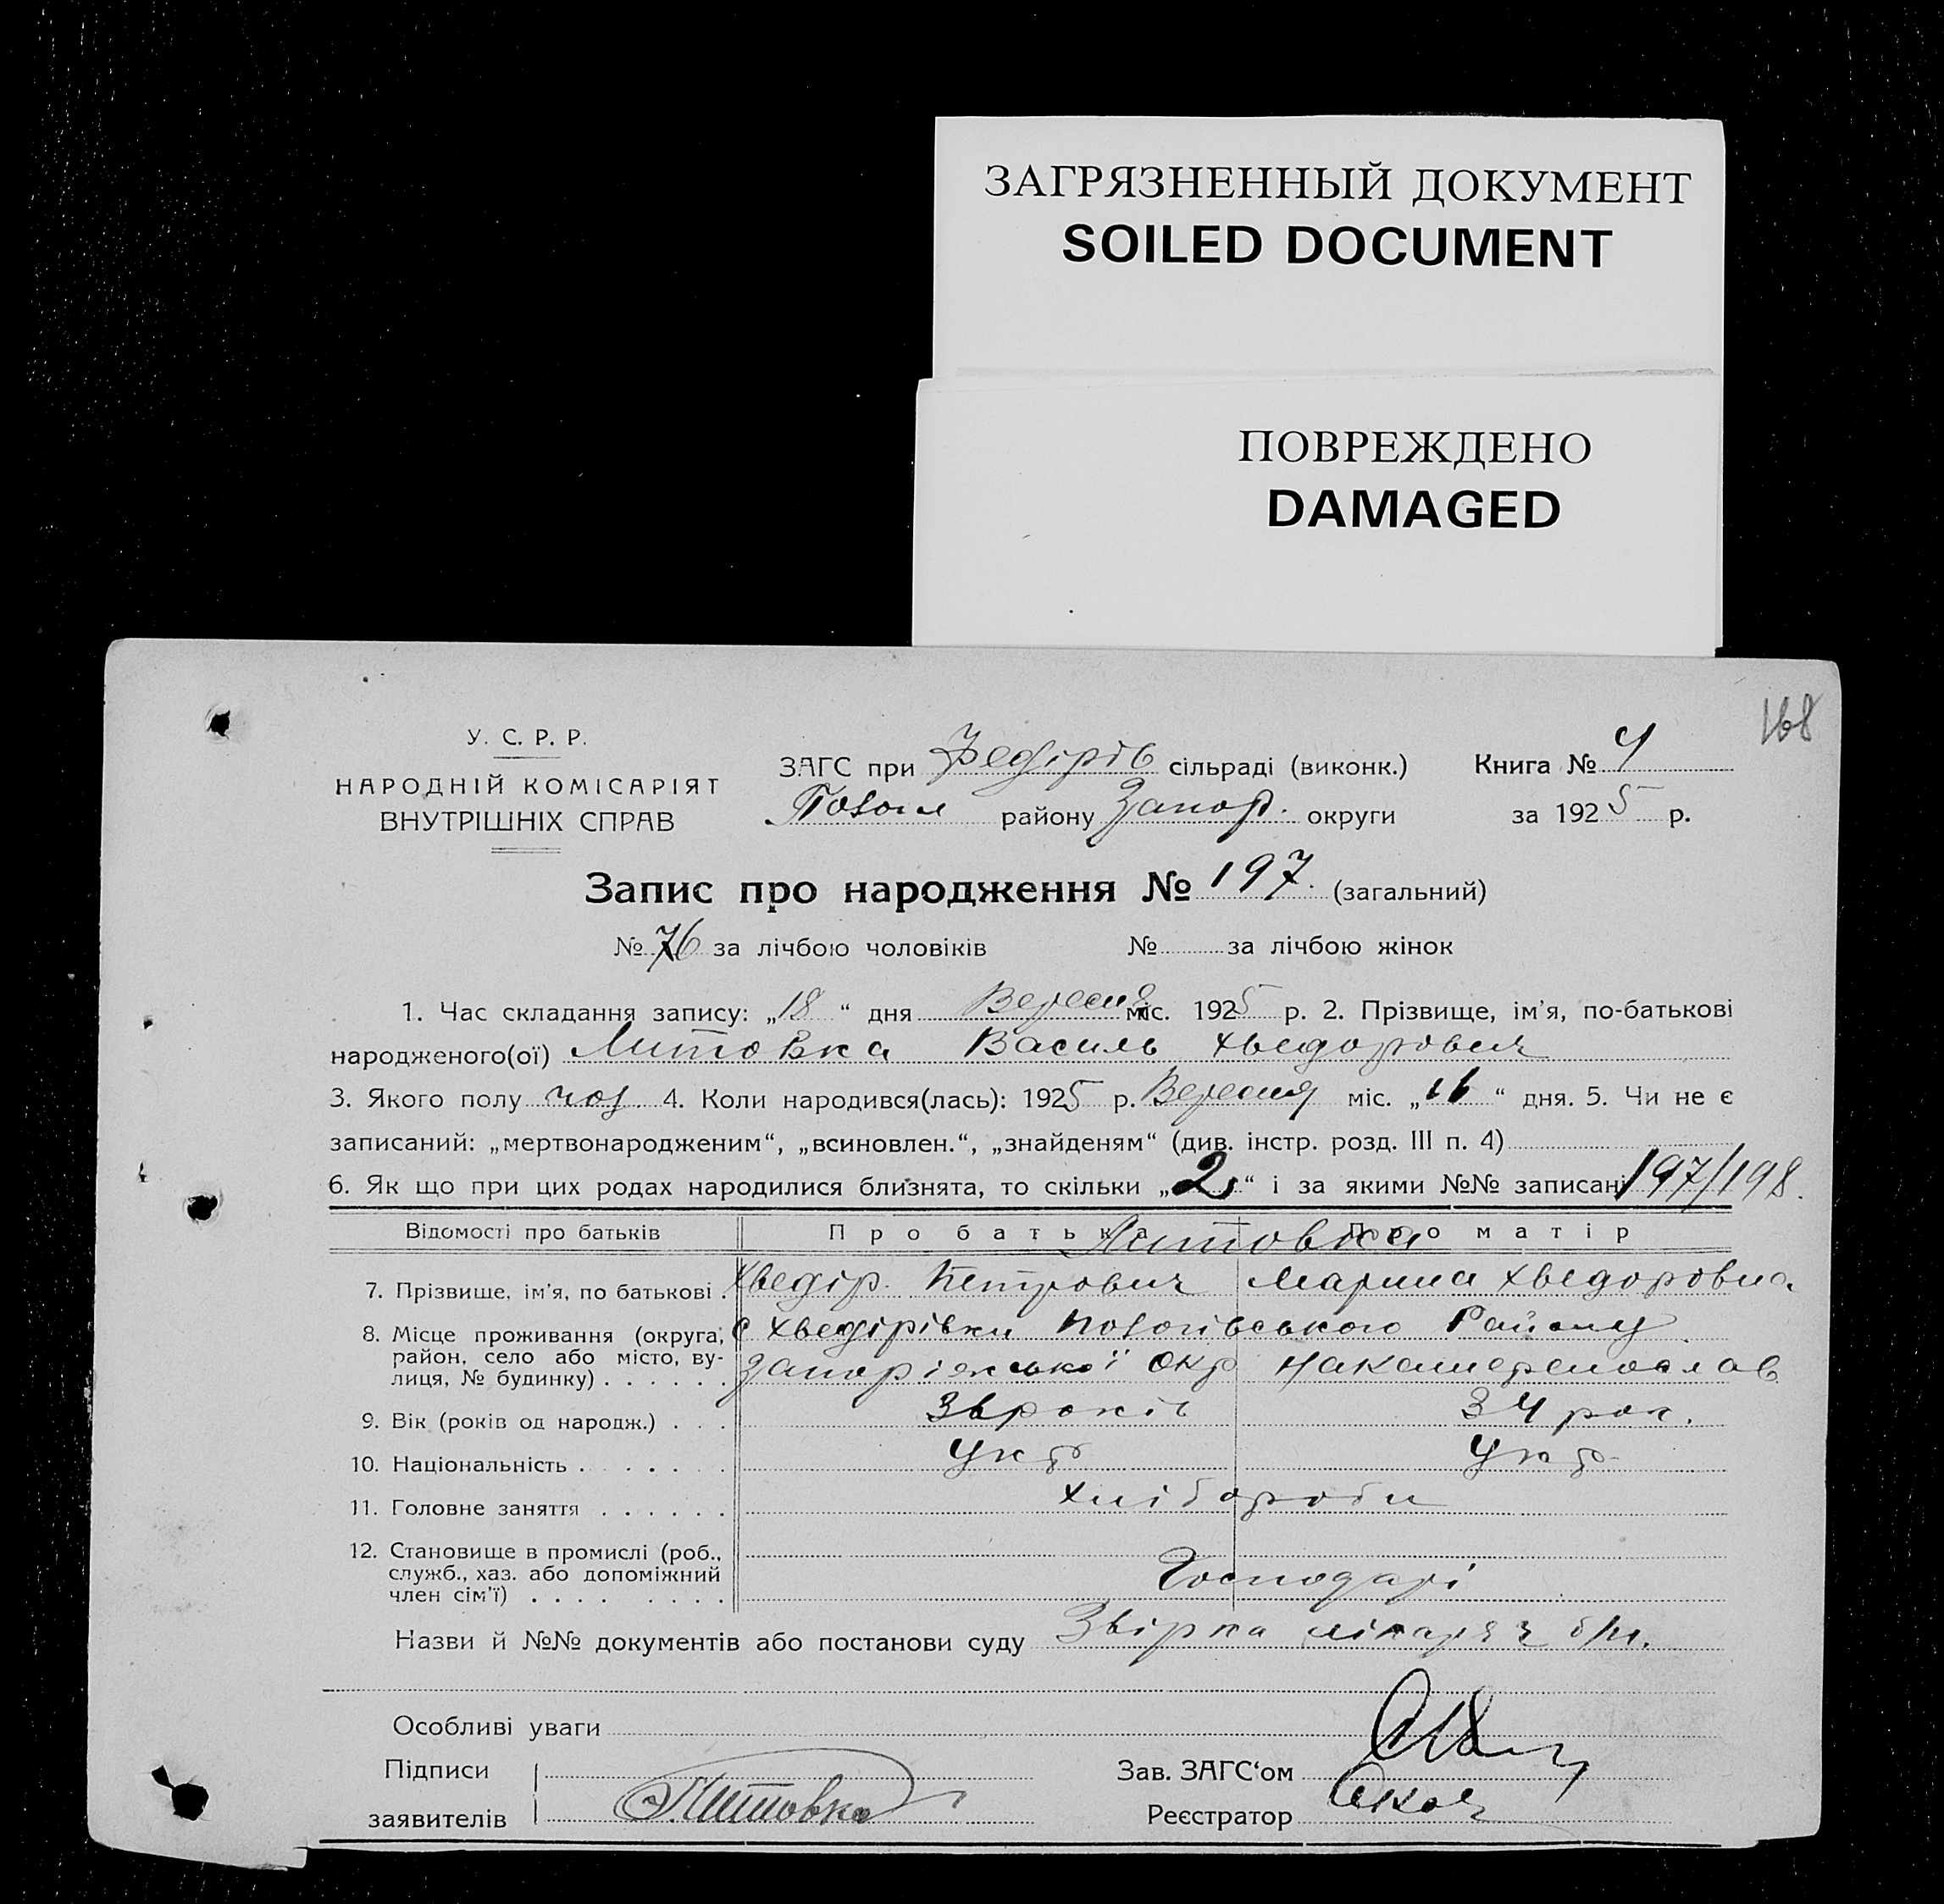 ЗАГРЯЗНЕННЫЙ ДОКУМЕНТ
SOILED DOCUMENT
ПОВРЕЖДЕНО
DAMAGED
168
У. С. Р. Р.
НАРОДНІЙ КОМІСАРІЯТ
ВНУТРІШНІХ СПРАВ
ЗАГС при Федірів сільраді (виконк.) Книга № 4
Полог району Запор. округи за 1925 р.
Запис про народження № 197. (загальний)
№ 76 за лічбою чоловіків № за лічбою жінок
1. Час складання запису: „18“ дня Вересня міс. 1925 р. 2. Прізвище, ім'я, по-батькові
народженого(ої) Литовка Василь Хведорович
3. Якого полу чол. 4. Коли народився(лась): 1925 р. Вересня міс. „16“ дня. 5. Чи не є
записаний: „мертвонародженим“, „всиновлен.“, „знайденям“ (див. інстр. розд. III п. 4)
6. Як що при цих родах народилися близнята, то скільки „2“ і за якими №№ записані 197/198.
Відомості про батьків Про батька Про матір
Литовка
7. Прізвище, ім'я, по батькові Хведір Петрович Марина Хведоровна
8. Місце проживання (округа, с Хведірівки Пологівського Району
район, село або місто, ву- Запоріжської Окр
лиця, № будинку)
9. Вік (років од народж.) 36 років 34 рок.
10. Національність Укр Укр
11. Головне заняття Хлібороби
12. Становище в промислі (роб.,
служб., хаз. або допоміжний Господарі
член сім'ї)
Назви й №№ документів або постанови суду Звірка б/н.
Особливі уваги
Підписи Зав. ЗАГС'ом
заявителів Литовка Реєстратор